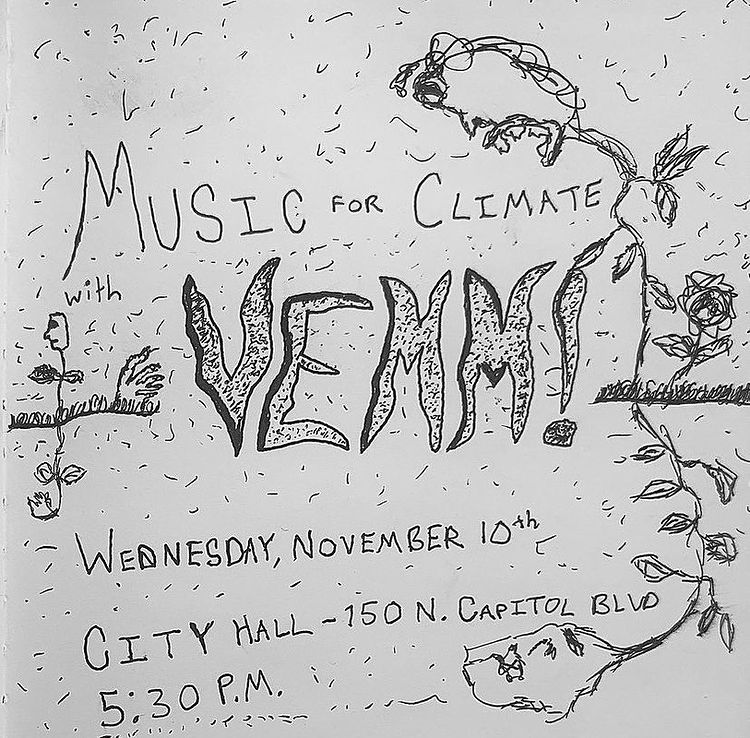 Music for Climate
with
VEMM!
Wednesday, November 10th
City Hall - 150 N. Capitol Blvd
5:30 P.M.